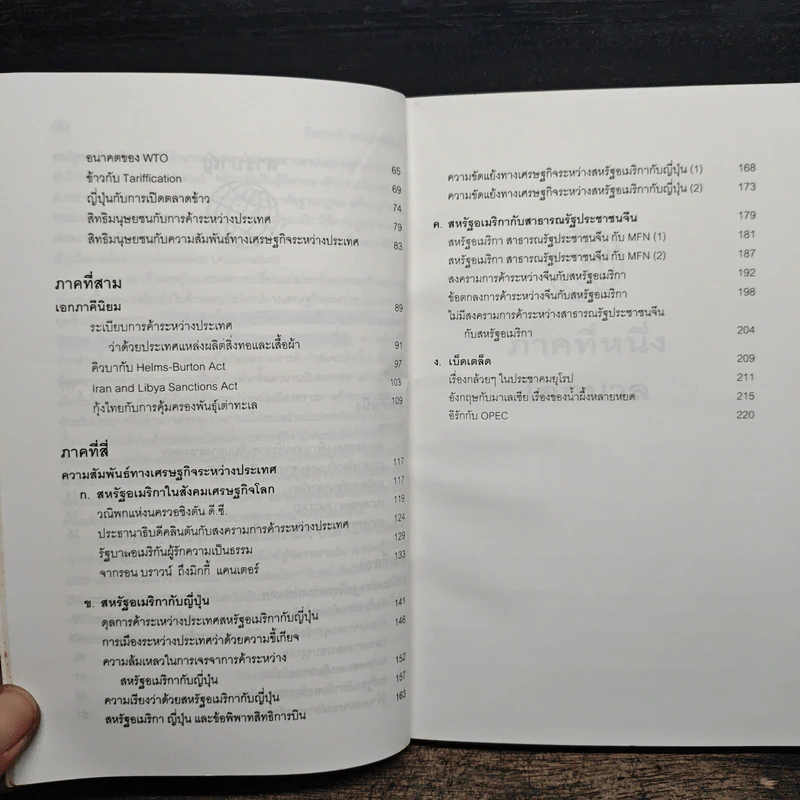 อนาคตของ WTO 65
ข้าวกับ Tariffication 69
ญี่ปุ่นกับการเปิดตลาดข้าว 74
สิทธิมนุษยชนกับการค้าระหว่างประเทศ 79
สิทธิมนุษยชนกับความสัมพันธ์ทางเศรษฐกิจระหว่างประเทศ 83
ภาคที่สาม
เอกภาคีนิยม 89
ระเบียบการค้าระหว่างประเทศ
ว่าด้วยประเทศแหล่งผลิตสิ่งทอและเสื้อผ้า 91
คิวบากับ Helms-Burton Act 97
Iran and Libya Sanctions Act 103
กุ้งไทยกับการคุ้มครองพันธุ์เต่าทะเล 109
ภาคที่สี่
ความสัมพันธ์ทางเศรษฐกิจระหว่างประเทศ 117
ก. สหรัฐอเมริกาในสังคมเศรษฐกิจโลก 117
วณิพกแห่งนครวอชิงตัน ดี.ซี. 119
ประธานาธิบดีคลินตันกับสงครามการค้าระหว่างประเทศ 124
รัฐบาลอเมริกันผู้รักความเป็นธรรม 129
จากรอน บราวน์ ถึงมิกกี้ แคนเตอร์ 133
ข. สหรัฐอเมริกากับญี่ปุ่น 141
ดุลการค้าระเหว่างประเทศสหรัฐอเมริกากับญี่ปุ่น 146
การเมืองระหว่างประเทศว่าด้วยความขี้เกียจ
ความล้มเหลวในการเจรจาการค้าระหว่าง
สหรัฐอเมริกากับญี่ปุ่น 152
ความเรียงว่าด้วยสหรัฐอเมริกากับญี่ปุ่น 157
สหรัฐอเมริกา ญี่ปุ่น และข้อพิพาทสิทธิการบิน 163
ความขัดแย้งทางเศรษฐกิจระหว่างสหรัฐอเมริกากับญี่ปุ่น (1) 168
ความขัดแย้งทางเศรษฐกิจระหว่างสหรัฐอเมริกากับญี่ปุ่น (2) 173
ค. สหรัฐอเมริกากับสาธารณรัฐประชาชนจีน 179
สหรัฐอเมริกา สาธารณรัฐประชาชนจีน กับ MFN (1) 181
สหรัฐอเมริกา สาธารณรัฐประชาชนจีน กับ MFN (2) 187
สงครามการค้าระหว่างจีนกับสหรัฐอเมริกา 192
ข้อตกลงการค้าระหว่างจีนกับสหรัฐอเมริกา 198
ไม่มีสงครามการค้าระหว่างสาธารณรัฐประชาชนจีน
กับสหรัฐอเมริกา 204
ง. เบ็ดเตล็ด 209
เรื่องกล้วยๆ ในประชาคมยุโรป 211
อังกฤษกับมาเลเซีย เรื่องของน้ำผึ้งหลายหยด 215
อิรักกับ OPEC 220